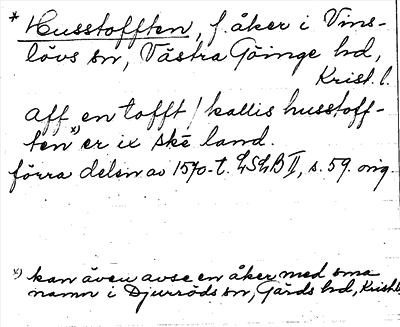 * Husstofften, f. åker i Vins-
lövs sn, Västra Göinge hd,
Krist. l.
aff en tofft / kallis husstoff-
ten x) er ix ske land.
förra delen av 1570-t. LSLB II, s. 59. orig.
x) kan även avse en åker med sma
namn i Djurröds sn, Gärds hd, Kristl.